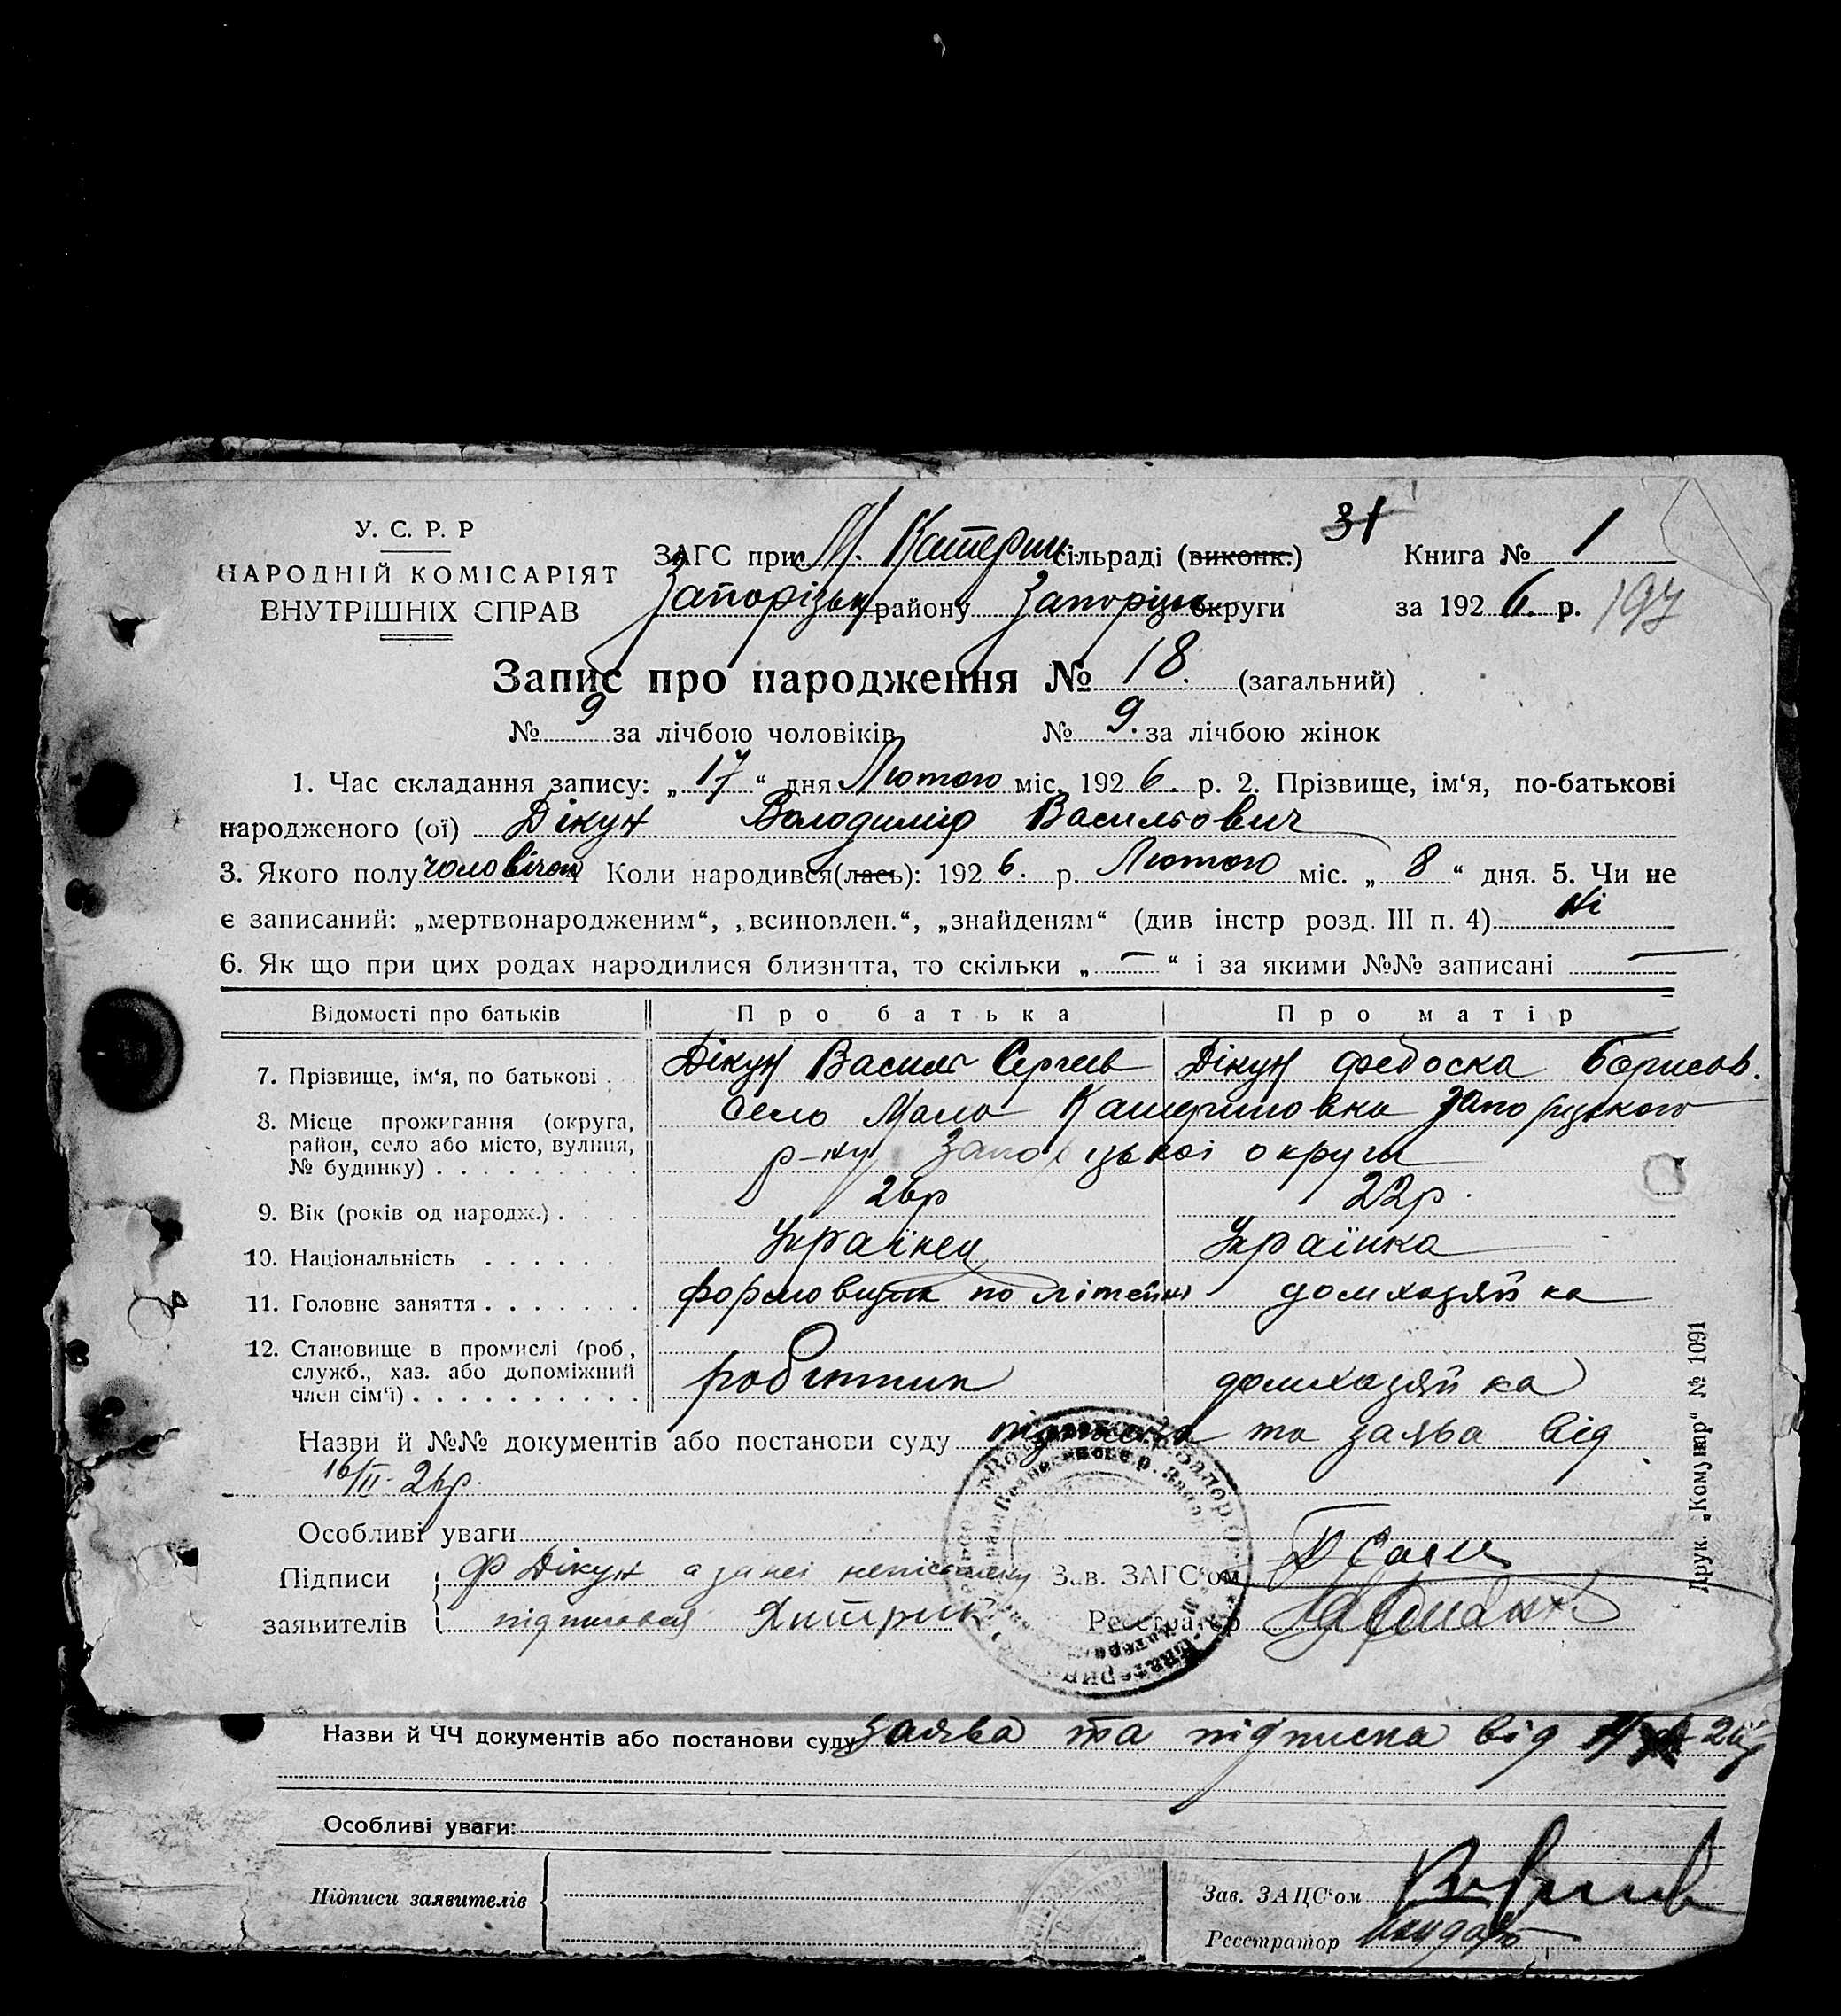 31
У. С. Р. Р
НАРОДНІЙ КОМІСАРІЯТ
ВНУТРІШНІХ СПРАВ
ЗАГС при М. Катерин. сільраді (виконк.) Книга № 1
Запорізьк району Запорізьк округи за 1926. р. 197
Запис про народження № 18. (загальний)
№ 9 за лічбою чоловіків № 9. за лічбою жінок
1. Час складання запису: „17“ дня Лютого міс. 1926. р. 2. Прізвище, ім‘я, по-батькові
народженого (ої) Дікун Володимір Васильович
3. Якого полу чоловічої Коли народився(лась): 1926. р. Лютого міс. „8“ дня. 5. Чи не
є записаний: „мертвонародженим“, „всиновлен.“, „знайденям“ (див інстр розд. III п. 4) Ні
6. Як що при цих родах народилися близнята, то скільки „—“ і за якими №№ записані —
Відомості про батьків Про батька Про матір
7. Прізвище, ім‘я, по батькові Дікун Василь Сергеев Дікун Федоска Борисов.
8. Місце прожигання (округа, село Мало Катериновка Запорізького
район, село або місто, вулиця, р-ну Запорізької округи
№ будинку)
9. Вік (років од народж.) 26р 22р.
10. Національність Українец Українка
11. Головне заняття формовщик по літейні домхазяйка
12. Становище в промислі (роб.,
служб., хаз. або допоміжний робітник домхазяйка
член сім‘ї)
Назви й №№ документів або постанови суду підписка та заява від
16/II-26р.
Особливі уваги
Підписи Ф Дікун а за неї Зав. ЗАГС‘ом
заявителів Реєстратор
Друк. „Комунар“ № 1091
Назви й ЧЧ документів або постанови суду заява та підписка від
Особливі уваги:
Підписи заявителів Зав. ЗАЦС‘ом
Реєстратор